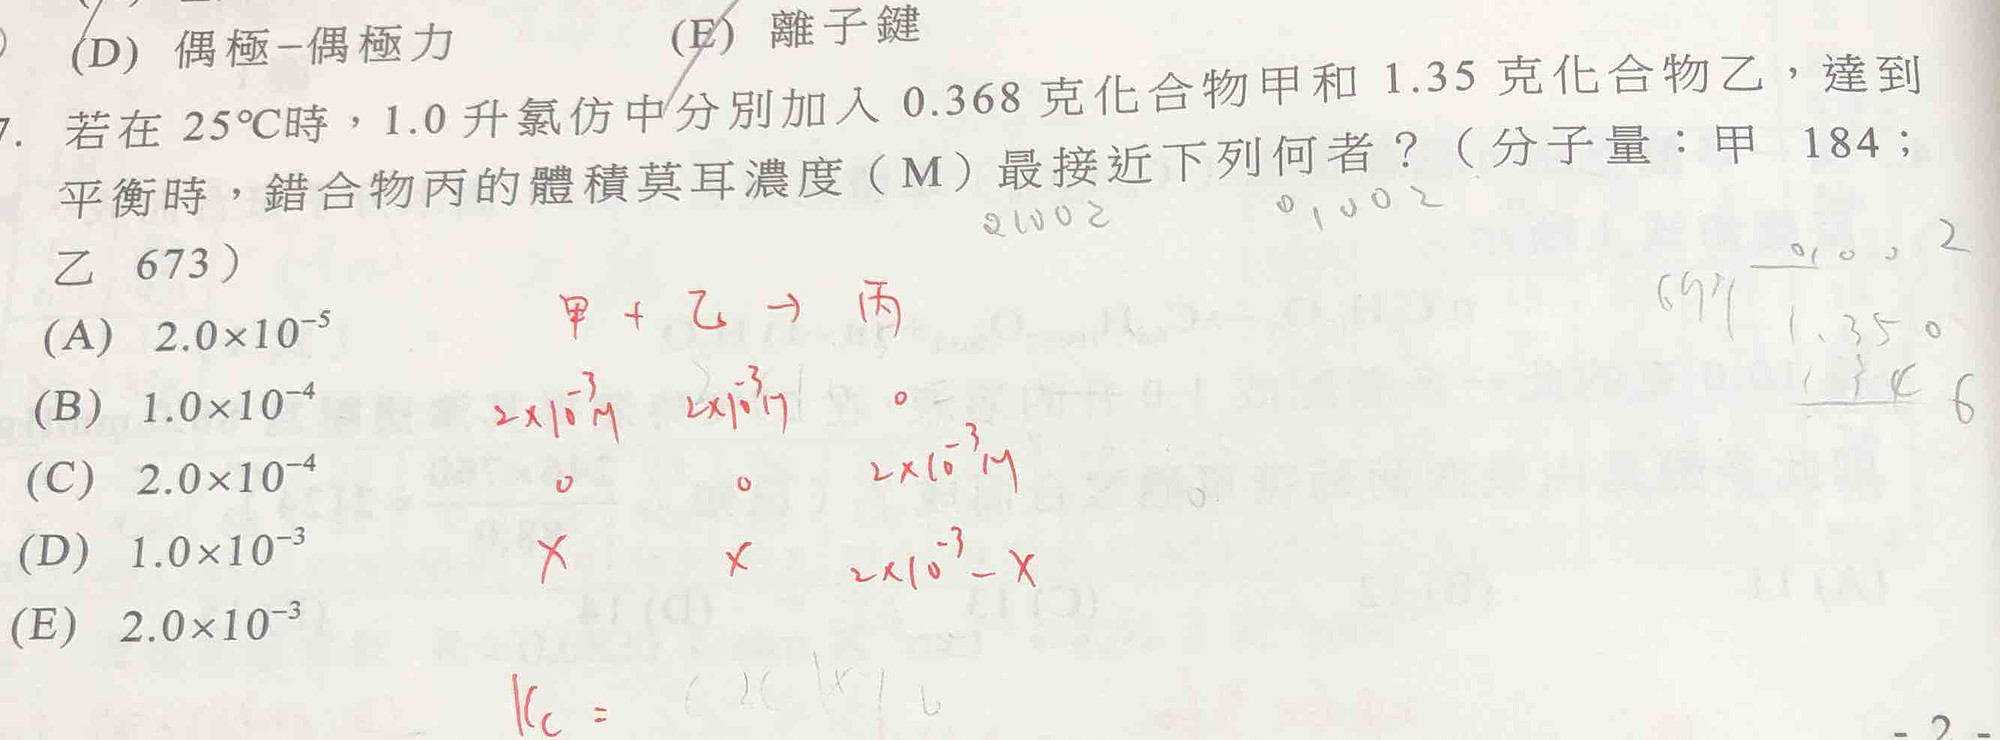 (D) 偶極–偶極力 (E) 離子鍵
7. 若在 25℃時，1.0 升氯仿中分別加入 0.368 克化合物甲和 1.35 克化合物乙，達到
平衡時，錯合物丙的體積莫耳濃度（M）最接近下列何者？（分子量：甲 184；
0.002 0.002
乙 673）
甲 + 乙 → 丙
(A) 2.0×10⁻⁵
(B) 1.0×10⁻⁴
2×10⁻³M 2×10⁻³M 0
(C) 2.0×10⁻⁴
0 0 2×10⁻³M
(D) 1.0×10⁻³
x x 2×10⁻³-x
(E) 2.0×10⁻³
Kc =
1.350
1346
- 2 -